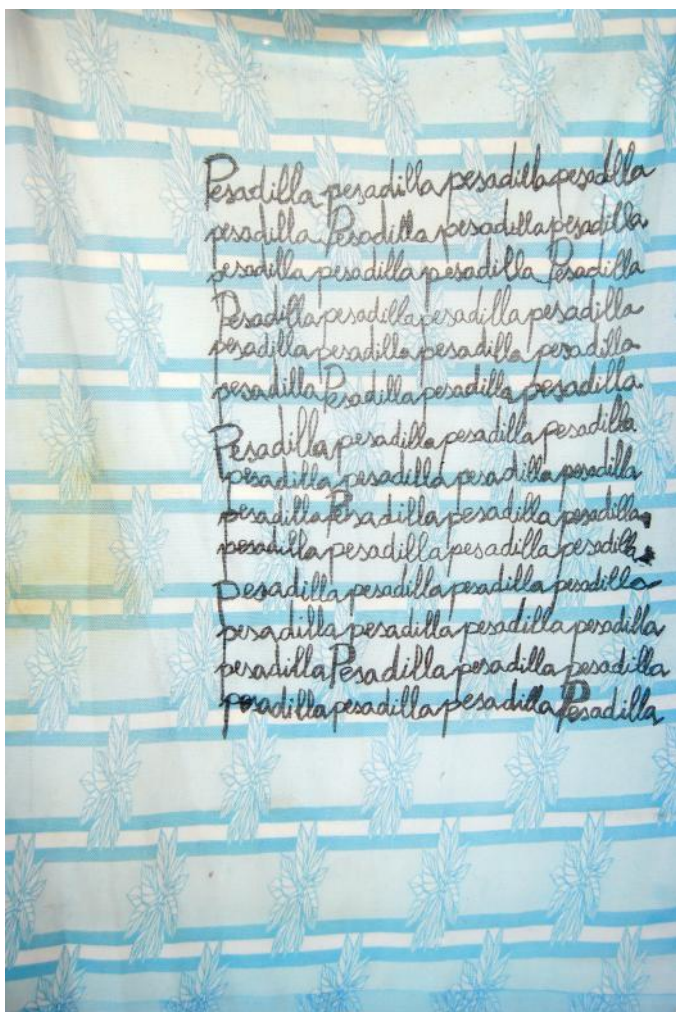 Pesadilla pesadilla pesadilla pesadilla
pesadilla Pesadilla pesadilla pesadilla
pesadilla pesadilla pesadilla Pesadilla
Pesadilla pesadilla pesadilla pesadilla
pesadilla pesadilla pesadilla pesadilla
pesadilla Pesadilla pesadilla pesadilla
Pesadilla pesadilla pesadilla pesadilla
pesadilla pesadilla pesadilla pesadilla
pesadilla Pesadilla pesadilla pesadilla
pesadilla pesadilla pesadilla pesadilla
pesadilla pesadilla pesadilla pesadilla
pesadilla pesadilla pesadilla pesadilla
pesadilla Pesadilla pesadilla pesadilla
pesadilla pesadilla pesadilla Pesadilla